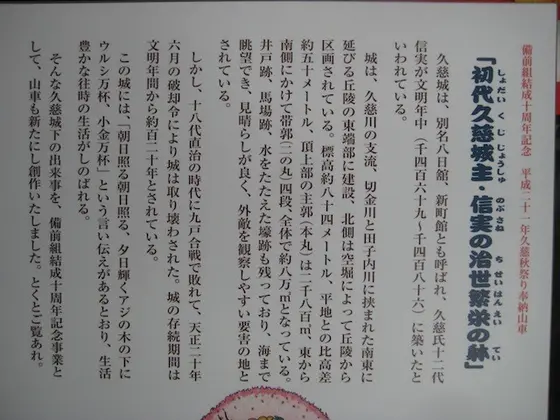 備前組結成十周年記念　平成二十一年久慈秋祭り奉納山車
「初代久慈城主・信実の治世繁栄の躰」
しょだいくじじょうしゅ　のぶざね　ちせいはんえい　てい
久慈城は、別名八日館、新町館とも呼ばれ、久慈氏十二代
信実が文明年中（千四百六十九～千四百八十六）に築いたと
いわれている。
城は、久慈川の支流、切金川と田子内川に挟まれた南東に
延びる丘陵の東端部に建設、北側は空堀によって丘陵から
区画されている。標高約八十四メートル、平地との比高差
約五十メートル、頂上部の主郭（本丸）は二千八百㎡、東から
南側にかけて帯郭（二の丸）四段、全体で約八万㎡となっている。
井戸跡、馬場跡、水をたたえた壕跡も残っており、海まで
眺望でき、見晴らしが良く、外敵を観察しやすい要害の地と
されている。
しかし、十八代直治の時代に九戸合戦で敗れて、天正二十年
六月の破却令により城は取り壊された。城の存続期間は
文明年間から約百二十年とされている。
この城には、「朝日照る朝日照る、夕日輝くアジの木の下に
ウルシ万杯、小金万杯」という言い伝えがあるとおり、生活
豊かな往時の生活がしのばれる。
そんな久慈城下の出来事を、備前組結成十周年記念事業と
して、山車も新たにし創作いたしました。とくとご覧あれ。